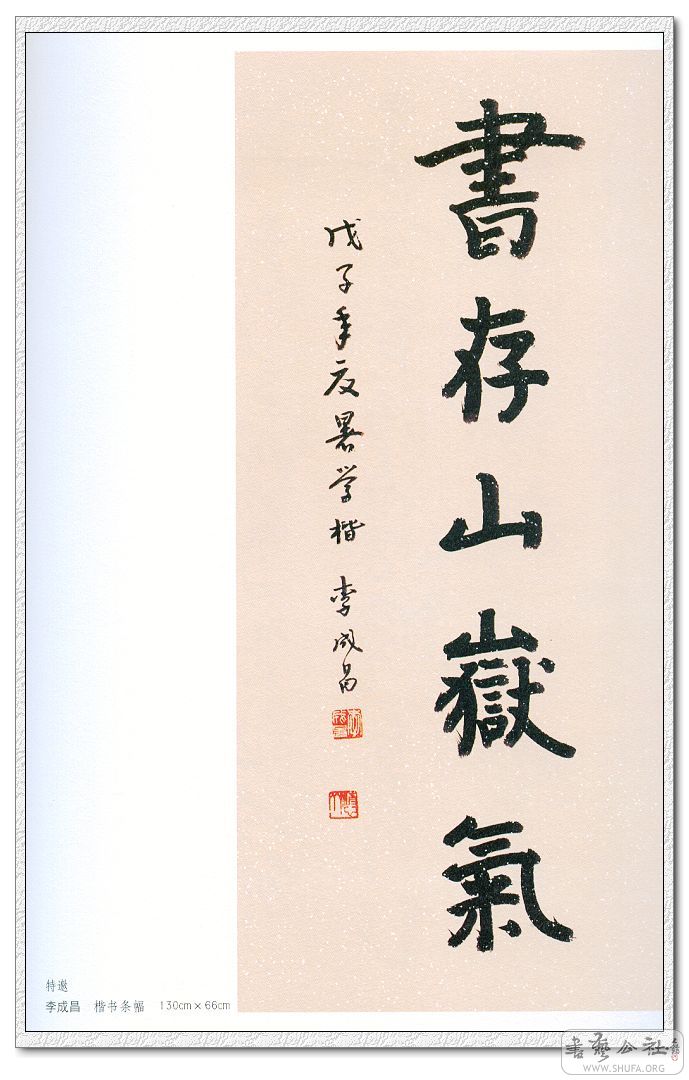 書存山嶽氣
戊子年夏暑学楷 李成昌
特邀
李成昌 楷书条幅 130cm×66cm
書藝公社
WWW.SHUFA.ORG